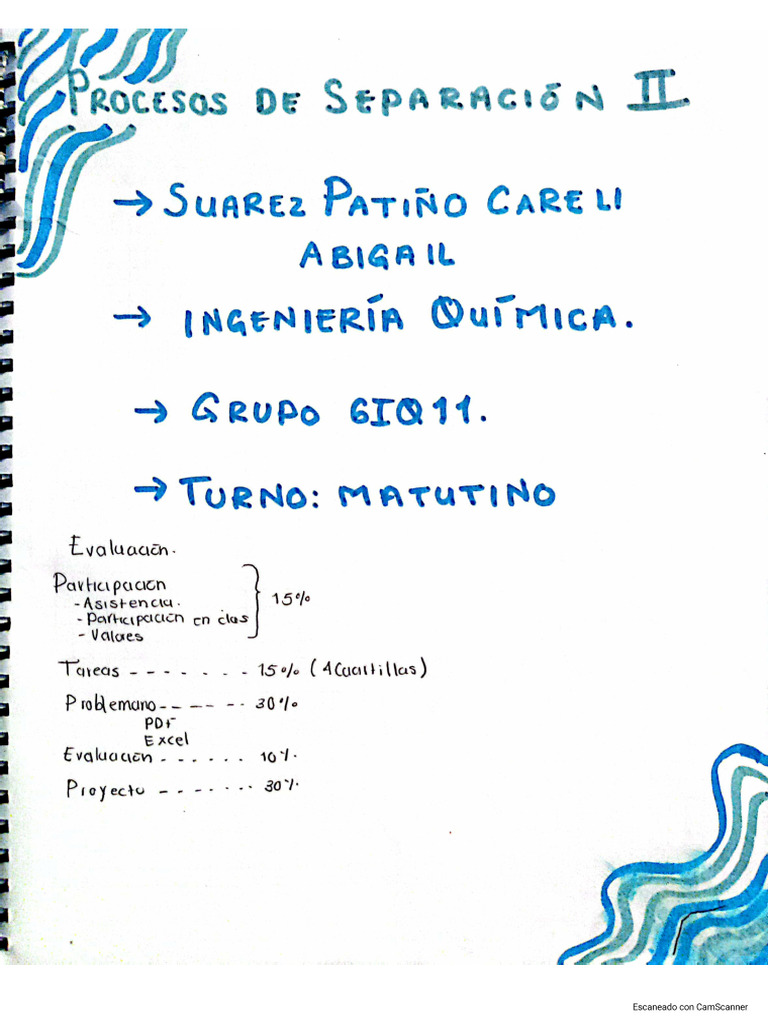 PROCESOS DE SEPARACIÓN II
→ SUAREZ PATIÑO CARELI
ABIGAIL
→ INGENIERÍA QUÍMICA.
→ GRUPO 6IQ11.
→ TURNO: MATUTINO
Evaluación.
Participación
- Asistencia.
- Participación en clas
- Valores
15%
Tareas - - - - - - - 15% (4 Cuartillas)
Problemario - - - - - - 30%
PDF
Excel
Evaluación - - - - - - 10%.
Proyecto - - - - - - - 30%.
Escaneado con CamScanner